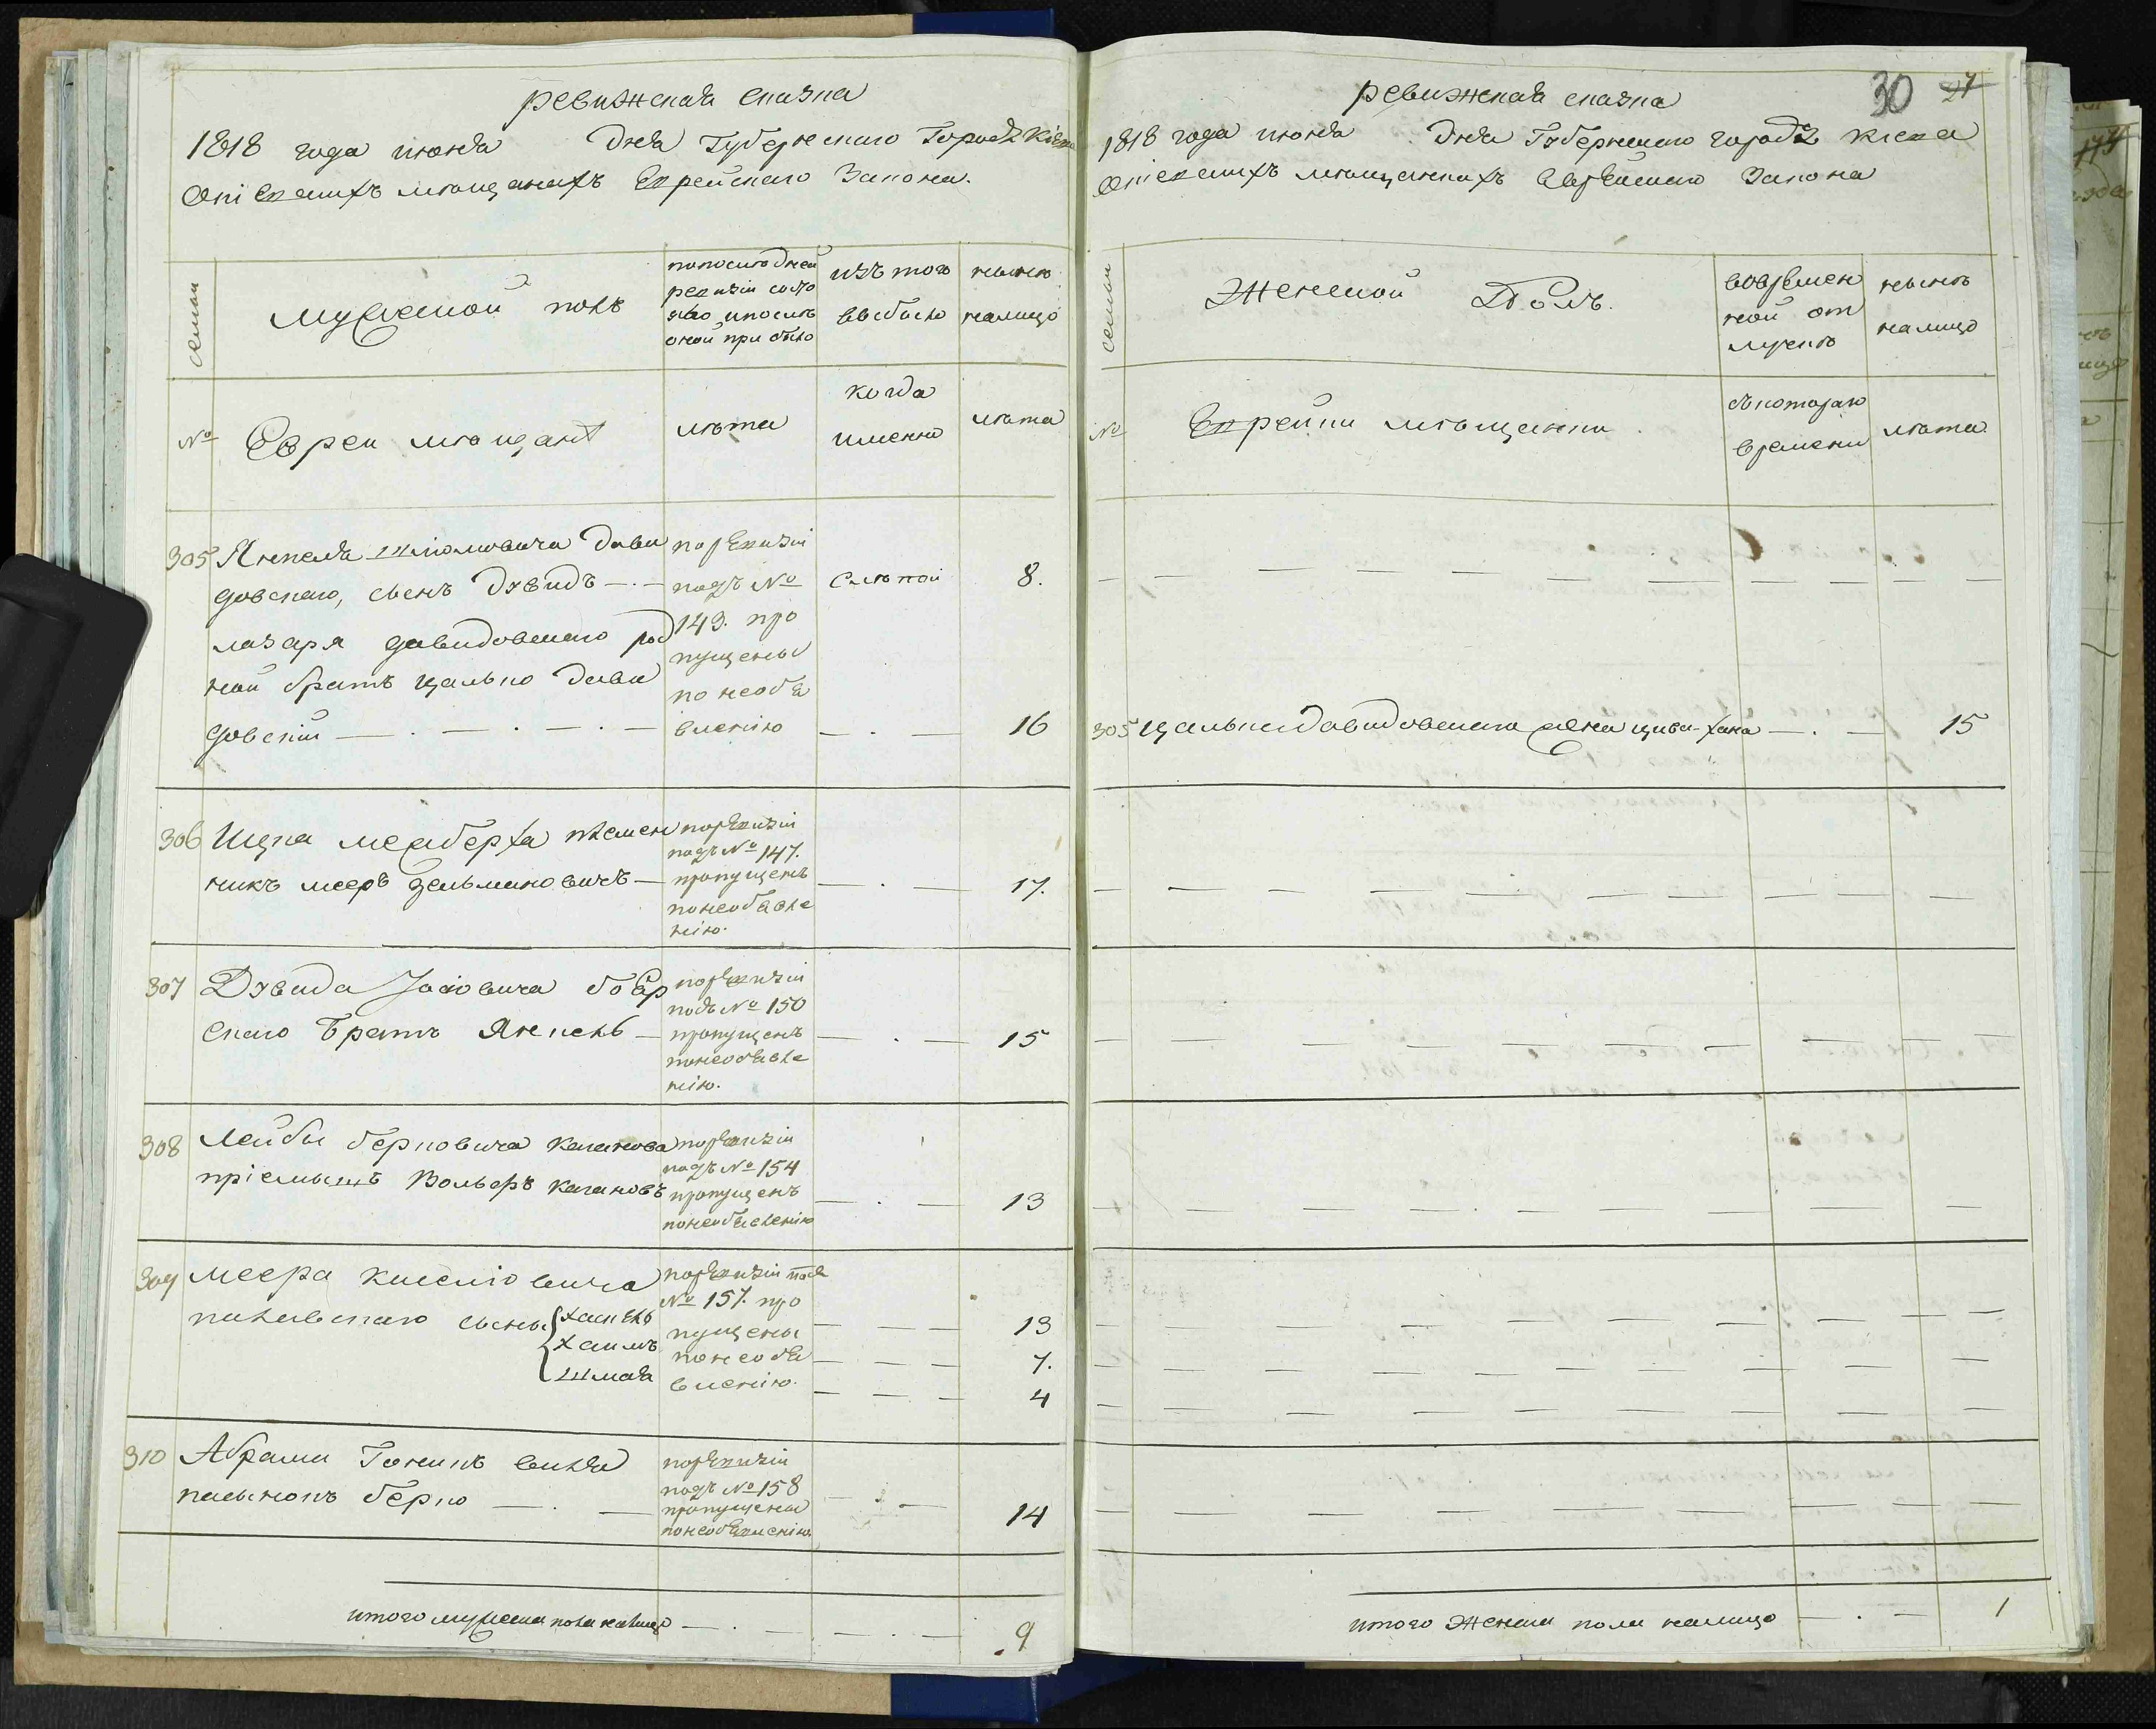 ревижская сказка
1818 года июня дня Губернскаго Города Кіева
Опіевскихъ мѣщанахъ Еврейскаго Закона.
семьи
мужеской полъ
попоследней
ревизіи состо
яло ипослѣ
оной прибыло
изъ того
выбыло
нынѣ
налицо
№
Евреи мѣщанѣ
лѣта
когда
именно
лѣта
305 Янкеля Шліомовича Дави
довскаго, сынъ Дувидъ
лазаря давидовскаго род
ной братъ цалько Дави
довскій
поревизіи
подъ №
143. про
пущены
по необъя
вленію
слѣпой
8.
16
306 Ицка меерберха племен
никъ мееръ зельмановичъ
поревизіи
подъ № 147.
пропущенъ
понеобъявле
нію.
17.
307 Дувида
скаго Братъ Янкель
поревизіи
подъ № 150
пропущенъ
понеобъявле
нію.
15
308 Лейбы берковича каганова
пріемышъ Вольфъ кагановъ
поревизіи
подъ № 154
пропущенъ
понеобъявленію
13
309 меера
сыны
Хаскель
Хаимъ
Шмая
поревизіи подъ
№ 157. про
пущены
понеобъя
вленію.
13
7.
4
310 Абрама
пасынокъ берко
поревизіи
подъ № 158
пропущены
понеобъявленію.
14
итого мужеска пола налицо
9
ревижская сказка
30 27
1818 года июня дня Губернскаго города Кіева
Опіевскихъ мѣщанкахъ Еврейскаго Закона
семьи
Женской Полъ.
вовремен
ной от
лучкѣ
нынѣ
налицо
№
Еврейки мѣщанки.
съкотораго
времени
лѣта
305 цалька давидовскаго жена цива-хана
15
итого Женска пола налицо
1